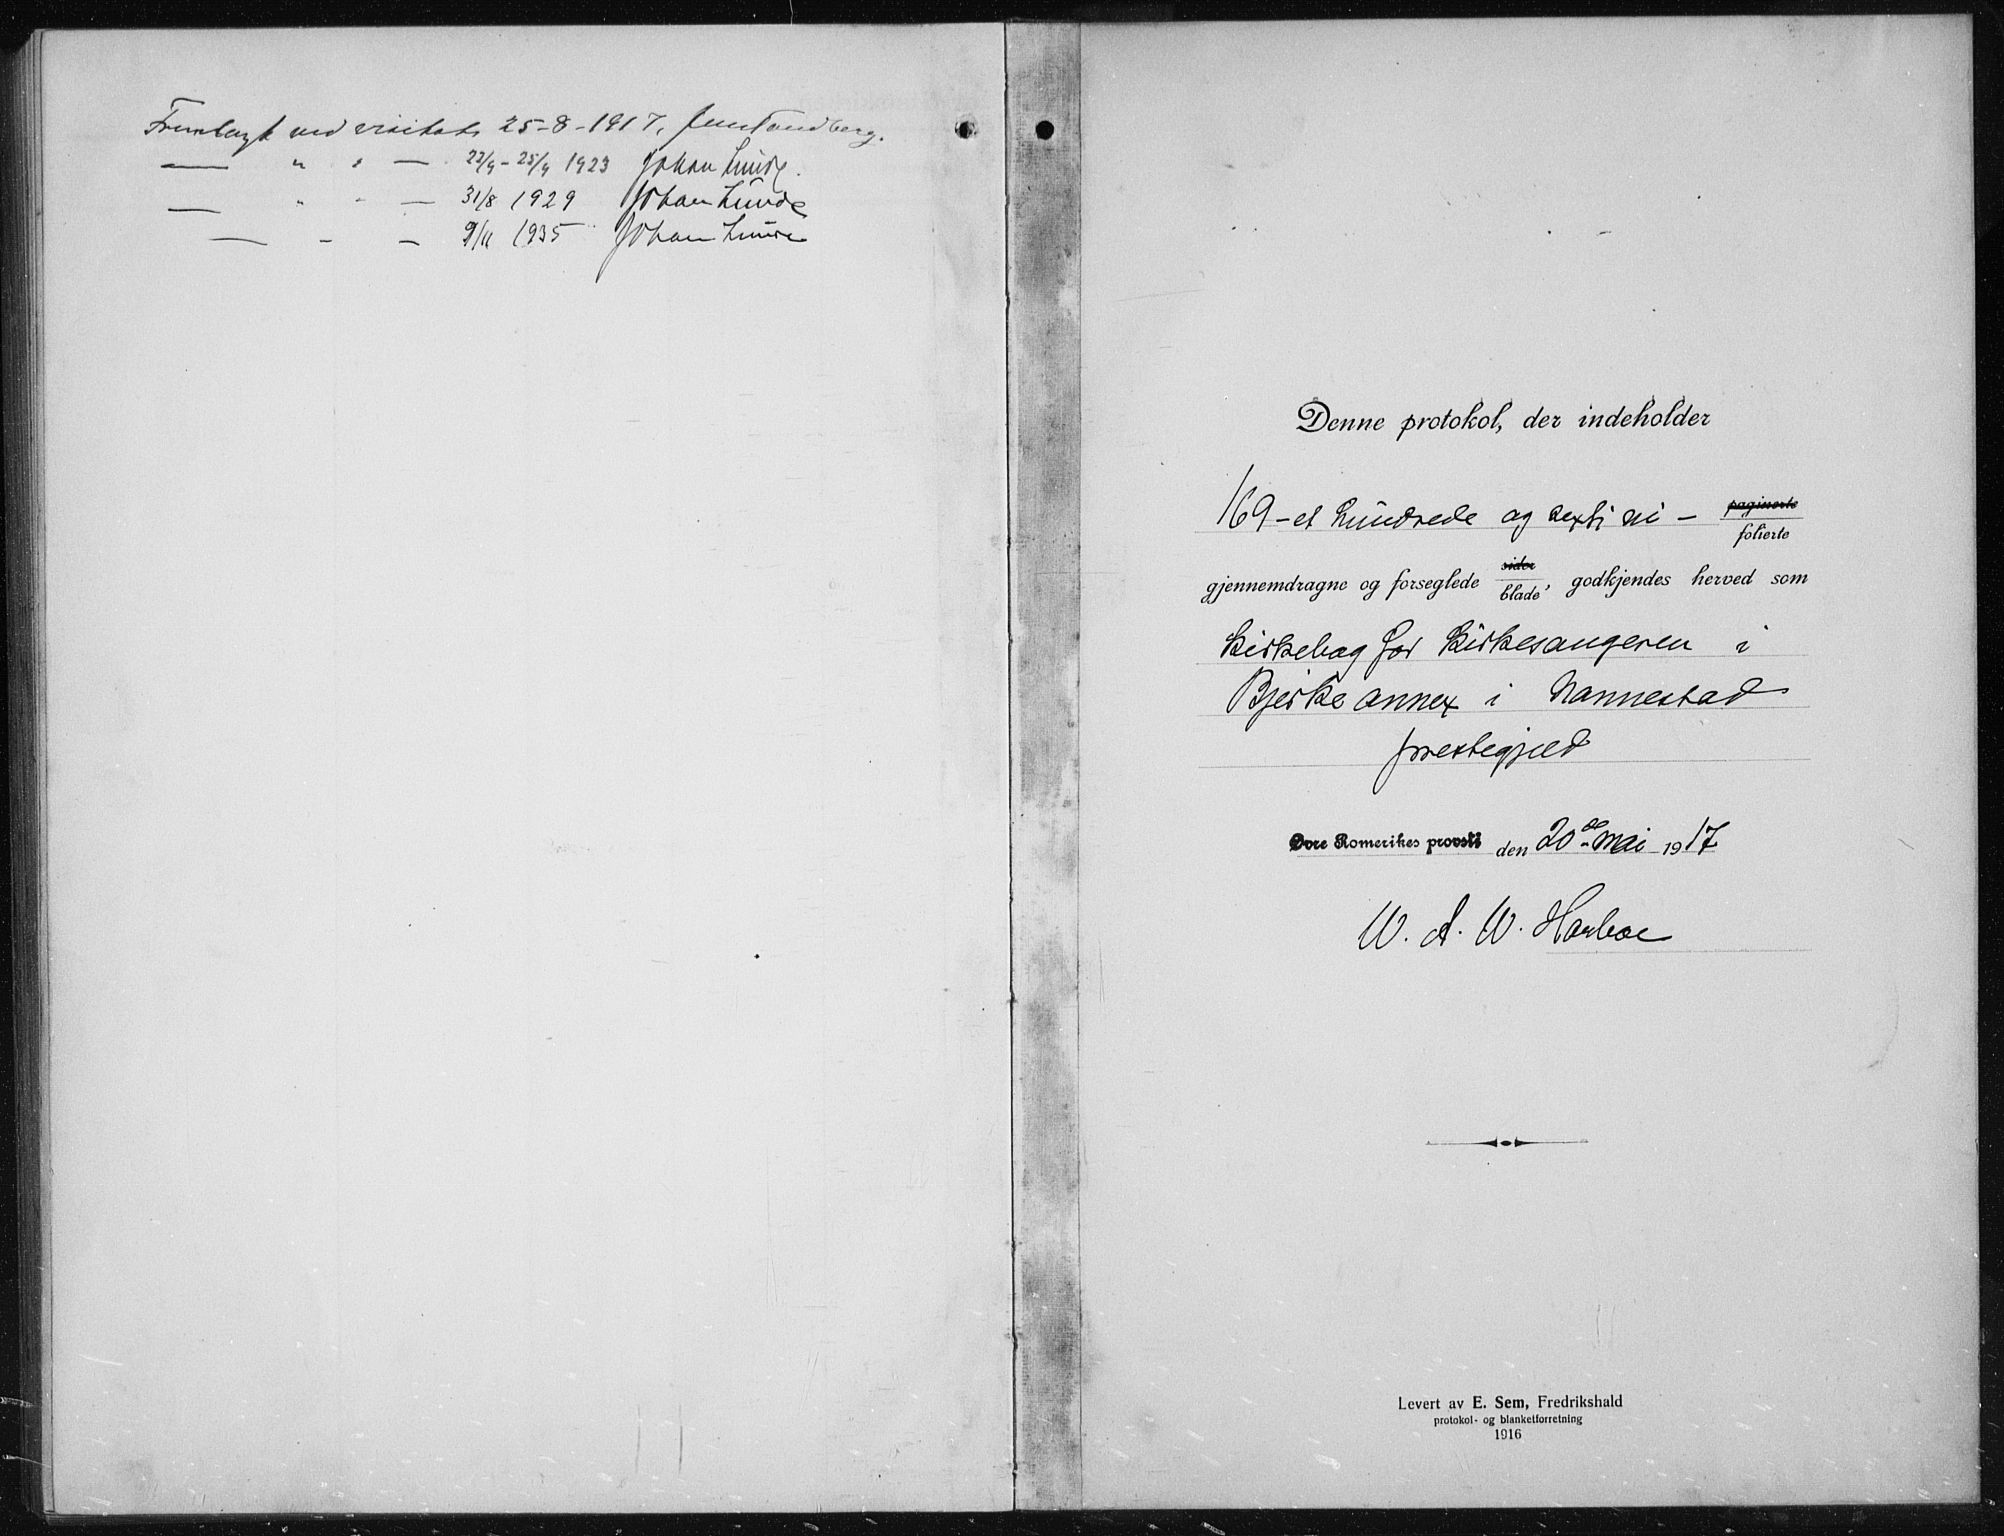 Fremlagt ved visitats 25-8-1917, Jens Tandberg.
— " " — 22/9 - 25/9 1923 Johan Lunde.
— " - — 31/8 1929 Johan Lunde
— - — 9/11 1935 Johan Lunde
Denne protokol, der indeholder
169 - et hundrede og sexti ni - paginerte
folierte
gjennemdragne og forseglede sider
blade, godkjendes herved som
kirkebog for kirkesangeren i
Bjerke annex i Nannestad
prestegjeld
Øvre Romerikes provsti den 20de mai 1917
W. A. W. Harboe
Levert av E. Sem, Fredrikshald
protokol- og blanketforretning
1916